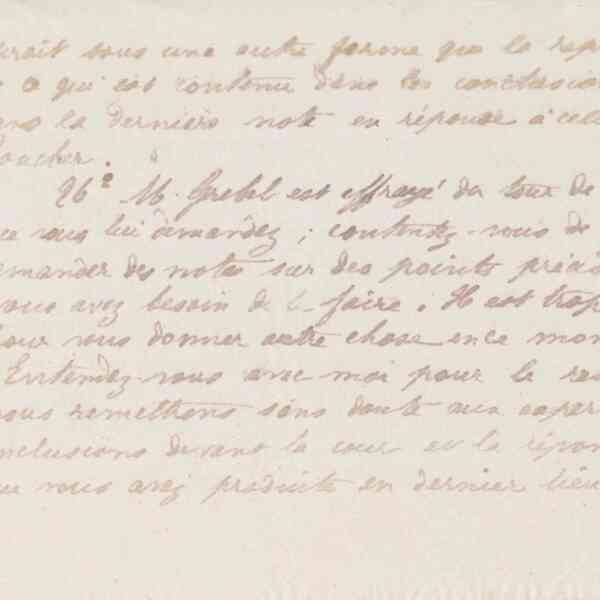 sous une autre forme que la rep
ce qui est contenu dans les conclusion
la dernière note en réponse à cell
26° M. Grebel est effrayé du tour de
vous lui demandez ; contentez-vous de
demander des notes sur des points préci
vous avez besoin de le faire ; Il est trop
pour vous donner autre chose en ce mom
Entendez-vous avec moi pour le
vous remettrons sans doute aux exper
conclusions devant la cour et la répon
que vous avez produite en dernier lieu